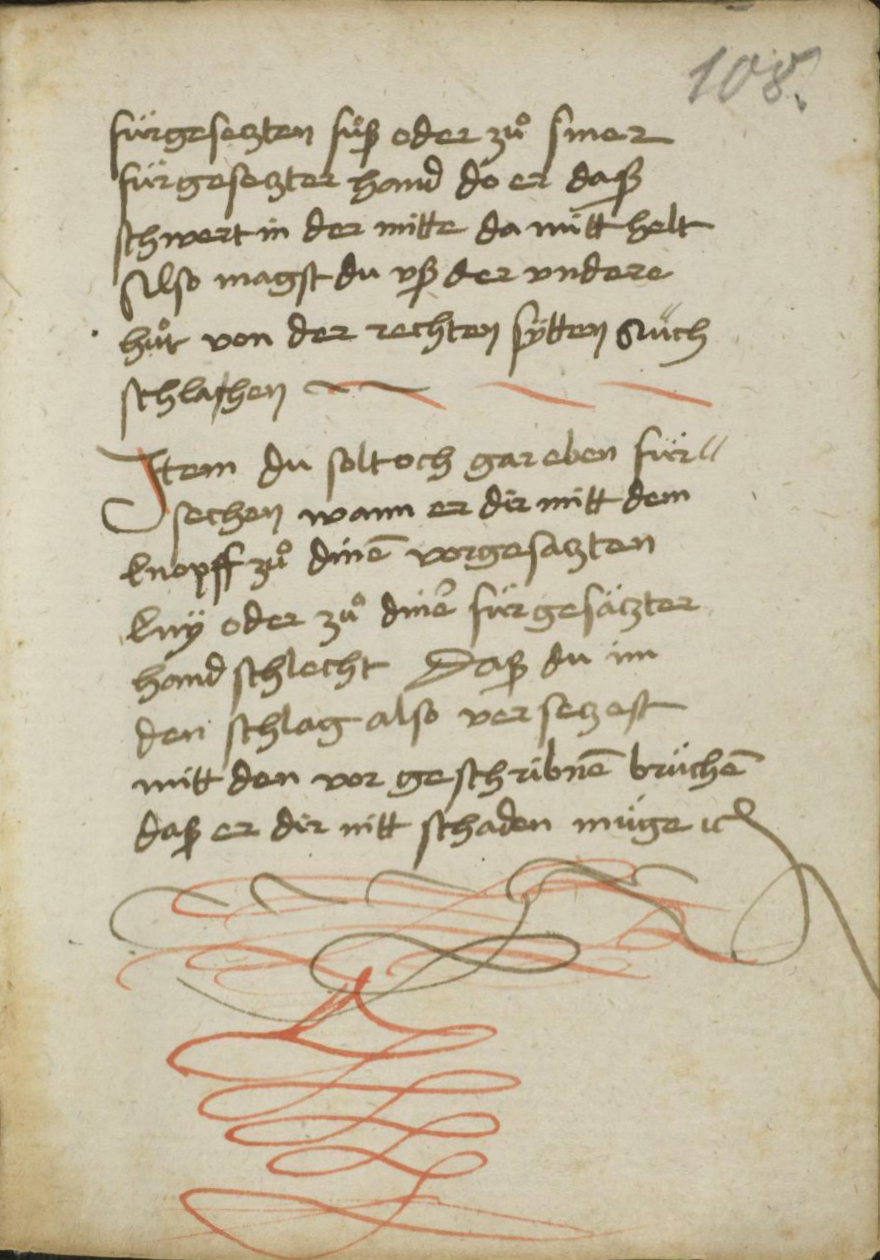 108.
fürgesetzten fůß oder zů siner
fürgesetzter hand do er daß
schwert in der mitte da mitt helt
Also magst du vß der vndere
hůt von der rechten sÿtten Auch
schlachen
Item du solt och gar eben für〃
sechen wann er dir mitt dem
knopff zů dinē vorgesatzten
knÿ oder zů dinē fürgesätzter
hand schlecht Daß du im
den schlag also versetzest
mitt den vor geschribnē brüchē
daß er dir nitt schaden müge